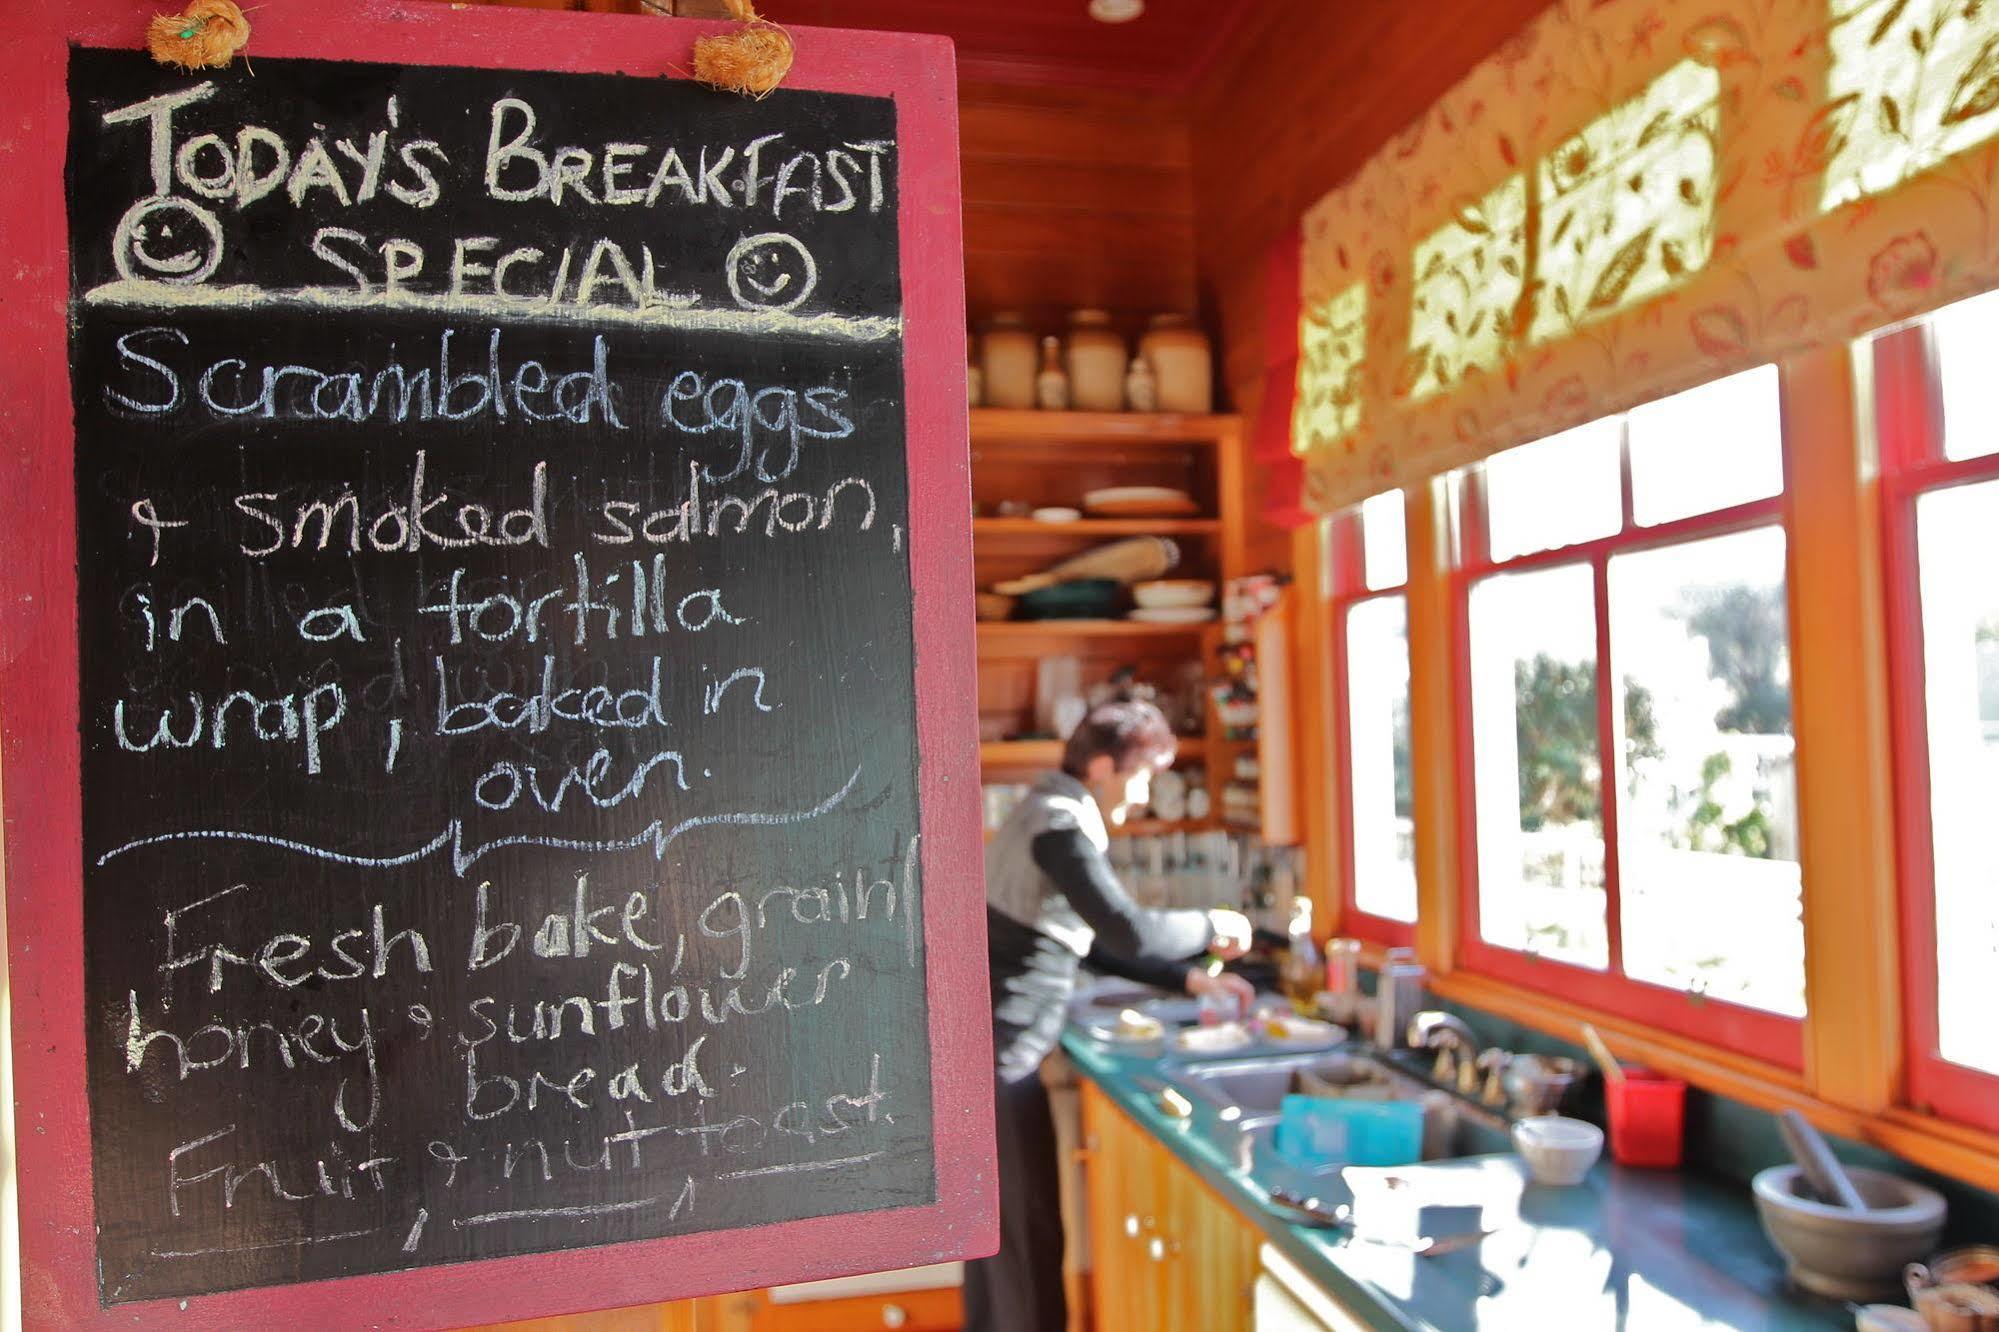 TODAY'S BREAKFAST
SPECIAL
Scrambled eggs
& smoked salmon,
in a tortilla
wrap, baked in
oven.
Fresh bake, grain
honey & sunflower
bread.
Fruit & nut toast.